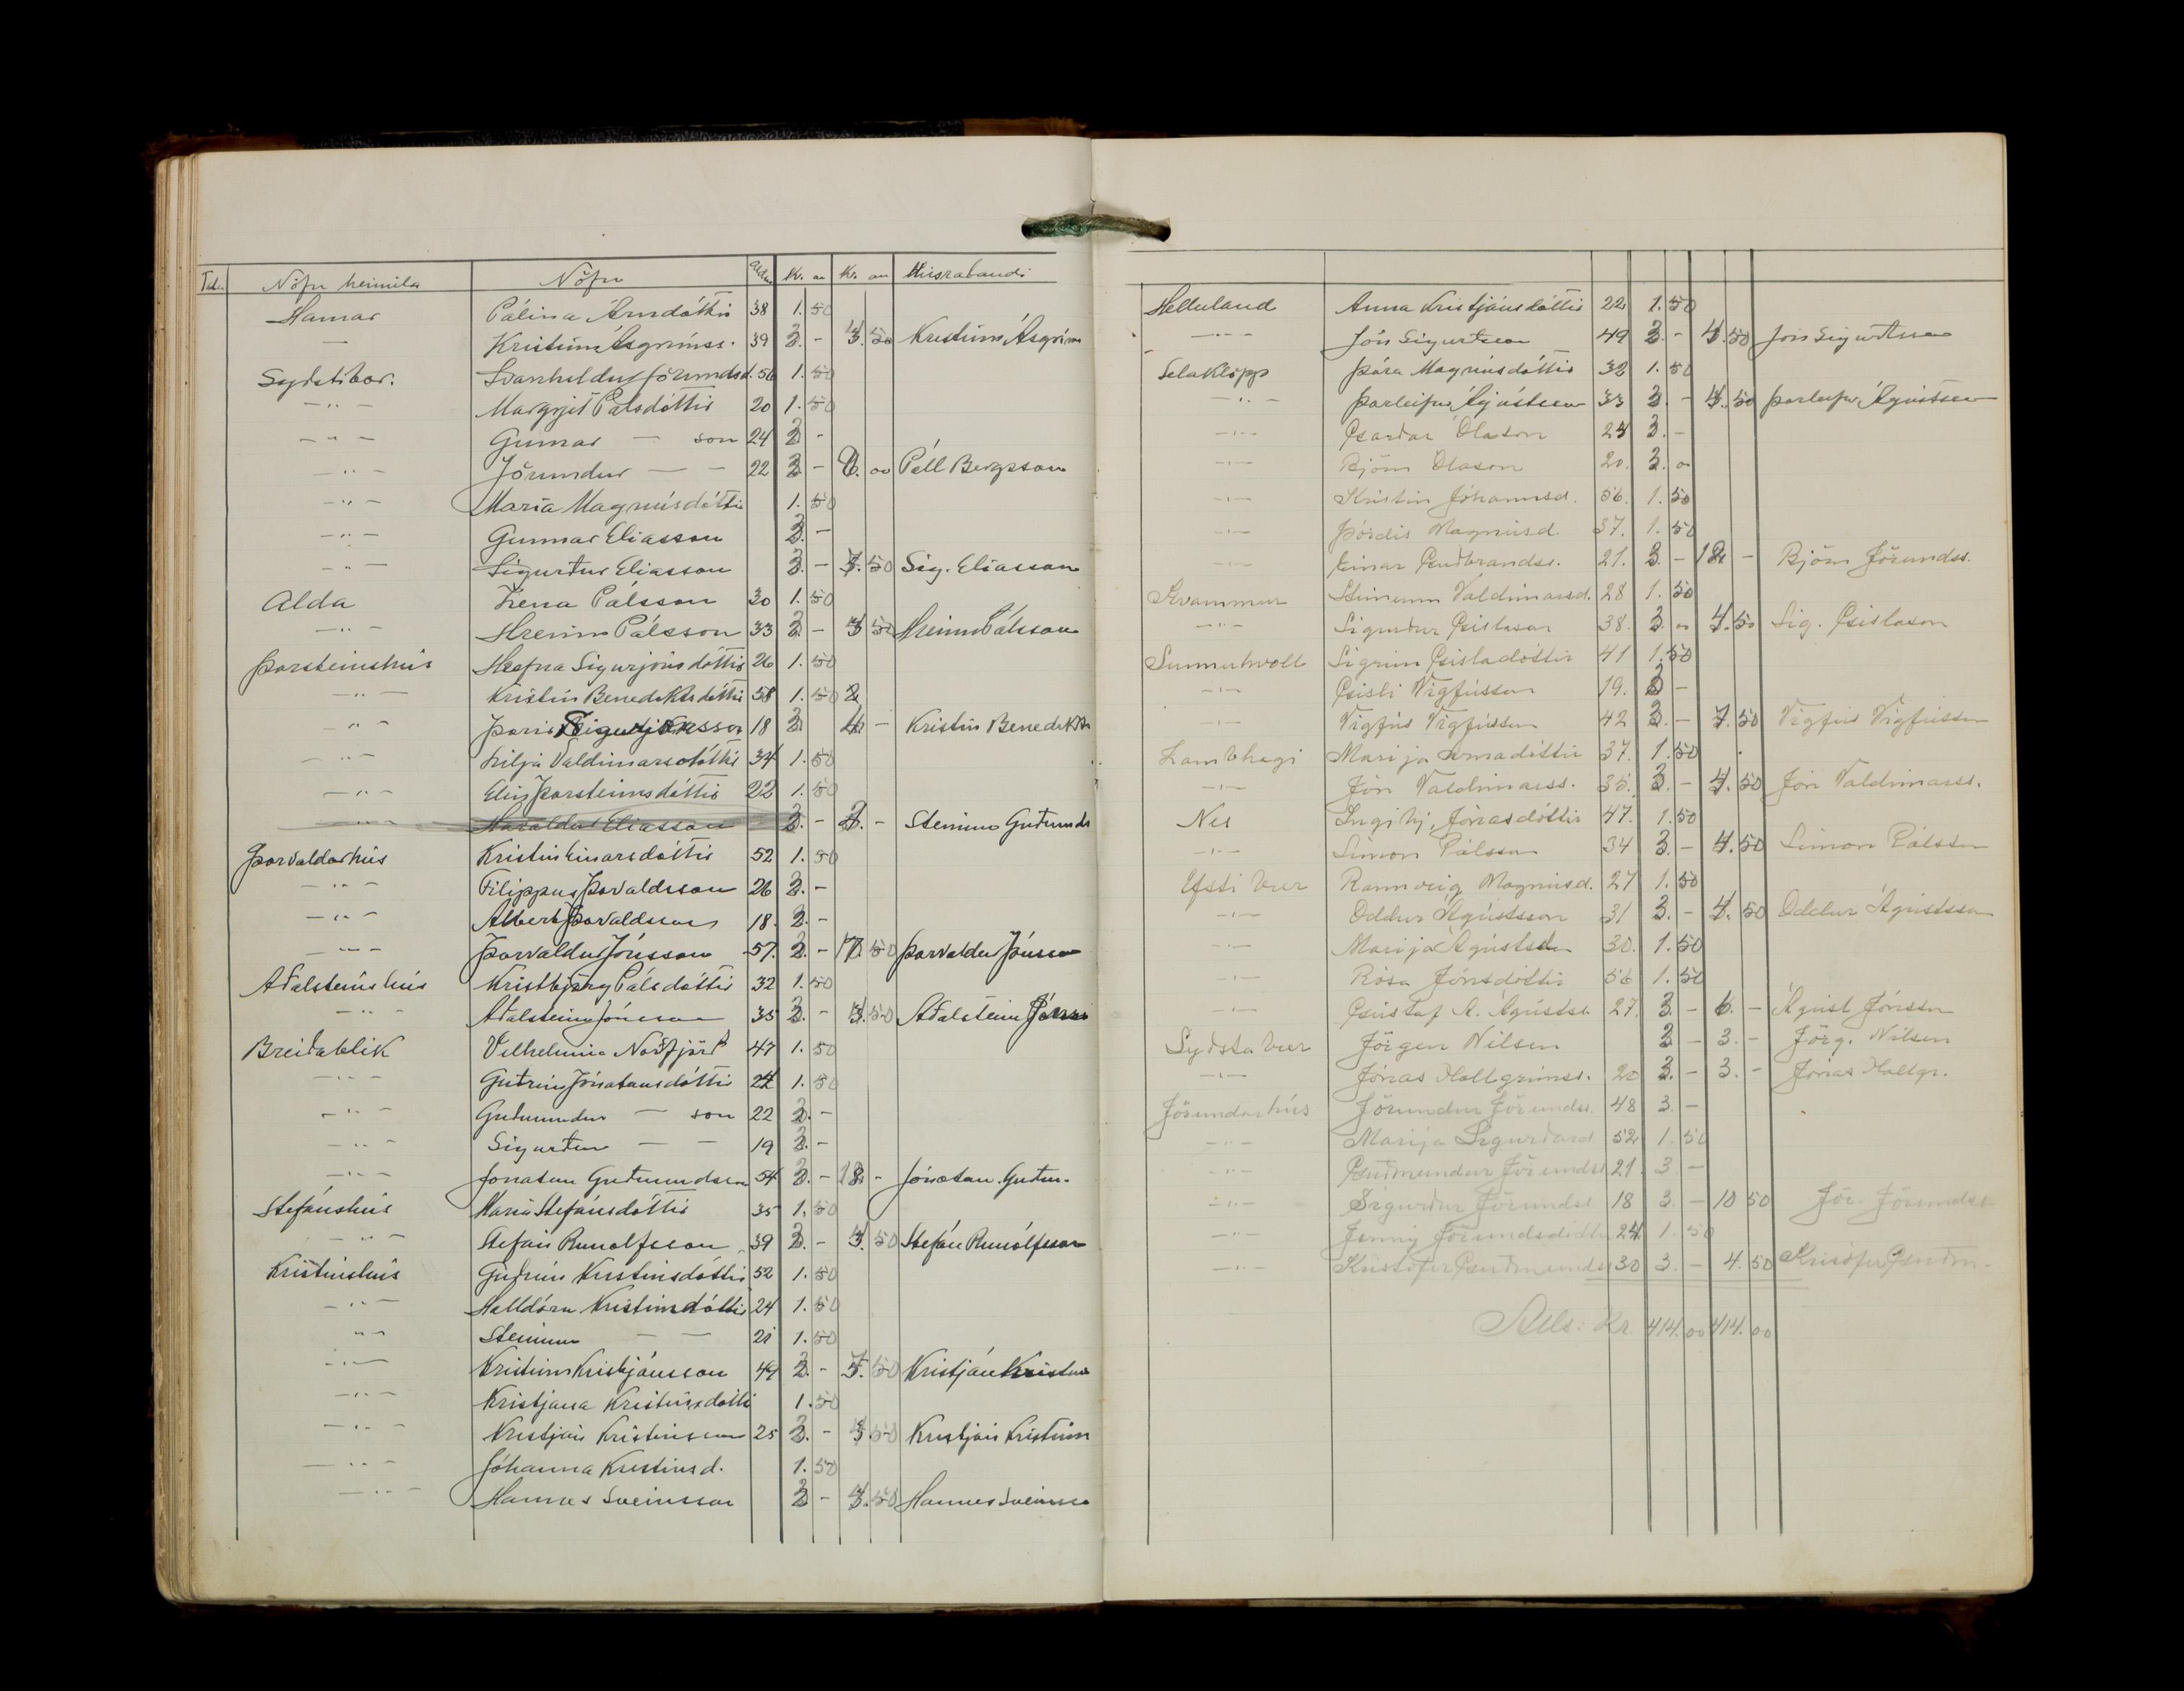 Tala Nöfn heimila Nöfn Aldur Kr. au Kr. au Húsráðandi
Hamar Pálína Árnadóttir 38 1. 50
— Kristinn Ásgrímss. 39 3. - 4. 50 Kristinn Ásgrím
Sydstibær. Svanhildur Jörundsd. 56 1. 50
— " — Margrjet Pálsdóttir 20 1. 50
— " — Gunnar — son 24 3 -
— " — Jörundur — — 22 3 - Páll Bergsson
— " — María Magnúsdóttir 1. 50
— " — Gunnar Elíasson 3. -
— " — Sigurður Elíasson 3. - 7. 50 Sig. Elíasson
Alda Lena Pálsson 30 1. 50
— " — Hreinn Pálsson 33 3 - 4 50 Hreinn Pálsson
Þorsteinshús Hrefna Sigurjónsdóttir 26 1. 50
— " — Kristín Benediktsdóttir 58 1. 50
— " — Þórir Sigurjónsson 18 3 - Kristín Benedikts
— " — Lilja Valdimarsdóttir 34 1. 50
— " — Elín Þorsteinsdóttir 22 1. 50
— " — Haraldur Elíasson 3. - 3. - Steinunn Guðmunds
Þorvaldarhús Kristín Einarsdóttir 52 1. 50
— " — Filippus Þorvaldsson 26 3. -
— " — Albert Þorvaldsson 18. 3. -
— " — Þorvaldur Jónsson 57. 3. - 50 Þorvaldur Jónsson
Aðalsteinshús Kristbjörg Pálsdóttir 32 1. 50
— " — Aðalsteinn Jónsson 35 3. - 4. 50 Aðalsteinn Jónss
Breiðablik Vilhelmína Norðfjörð 47 1. 50
— " — Guðrún Jónatansdóttir 24 1. 50
— " — Guðmundur — son 22 3. -
— " — Sigurður — — 19 3. -
— " — Jónatan Guðmundsson 54 3. - 12 - Jónatan Guðm.
Stefánshús María Stefánsdóttir 35 1. 50
— " — Stefán Runólfsson 39 3. - 4. 50 Stefán Runólfsson
Kristinshús Guðrún Kristinsdóttir 52 1. 50
— " — Halldóra Kristinsdóttir 24 1. 50
— " — Steinunn — — 21 1. 50
— " — Kristinn Kristjánsson 49 3. - 7. 50 Kristján Kristins
— " — Kristjana Kristinsdótti 1. 50
— " — Kristján Kristinsson 25 3. - 4. 50 Kristján Kristinn
— " — Jóhanna Kristinsd. 1. 50
— " — Hannes Sveinsson 3 - 4. 50 Hannes Sveinsso
Helluland Anna Kristjánsdóttir 22 1. 50
— " — Jón Sigurðsson 49 3. - 4. 50 Jón Sigurðsson
Selaklöpp Þóra Magnúsdóttir 32 1. 50
— " — Þorleifur Ágústsson 33 3. - 4. 50 Þorleifur Ágústsson
— " — Garðar Ólason 24 3. -
— " — Björn Ólason 20. 3. 0
— " — Kristín Jóhannsd. 56. 1. 50
— " — Þórdís Magnúsd. 37. 1. 50
— " — Einar Guðbrandss. 21. 3. - 18 - Björn Jörundss.
Hvammur Steinunn Valdimarsd. 28 1. 50
— " — Sigurður Gíslason 38. 3. 00 4. 50 Sig. Gíslason
Sunnuhvoll Sigrún Gísladóttir 41 1. 50
— " — Gísli Vigfússon 19. 3 -
— " — Vigfús Vigfússon 42 3. - 7. 50 Vigfús Vigfússon
Lambhagi Marija Árnadóttir 37. 1. 50
— " — Jón Valdimarss. 35. 3. - 4. 50 Jón Valdimarss.
Nes Ingibj. Jónasdóttir 47. 1. 50
— " — Símon Pálsson 34 3. - 4. 50 Símon Pálsson
Efsti bær Rannveig Magnúsd. 27 1. 50
— " — Oddur Ágústsson 31 3. - 4. 50 Oddur Ágústsson
— " — Marija Ágústsd. 30. 1. 50
— " — Rósa Jónsdóttir 56 1. 50
— " — Gústaf A. Ágústss. 27. 3. - 6. - Ágúst Jónsson
Sydsta bær Jörgen Nilsen 3 - 3. - Jörg. Nilsen
— " — Jónas Hallgrímss. 20 3. - 3. - Jónas Hallgr.
Jörundarhús Jörundur Jörundss. 48 3. -
— " — Marija Sigurðard. 52 1. 50
— " — Guðmundur Jörundss. 21. 3. -
— " — Sigurður Jörundss 18 3. - 10 50 Jör. Jörundsson
— " — Jenný Jörundsdóttir 24 1. 50
— " — Kristófer Guðmundss 30 3. - 4. 50 Kristófer Guðm.
Alls: Kr. 414. 00 414. 00